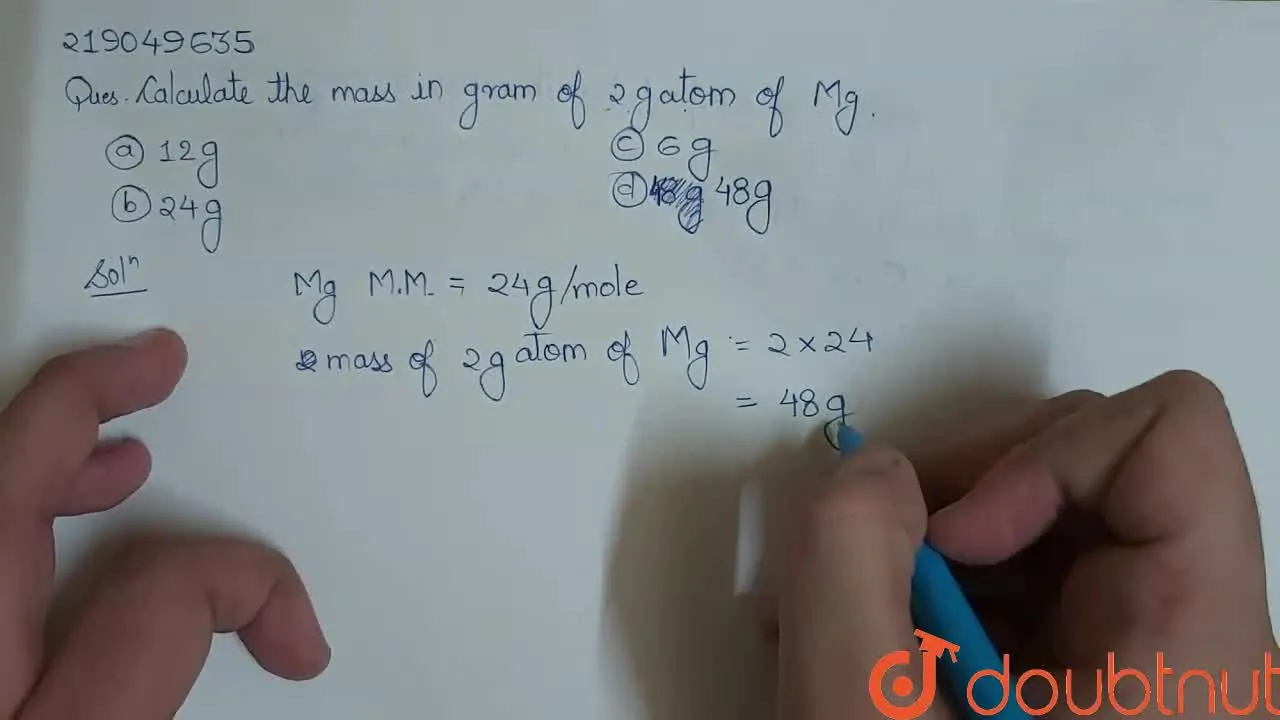 219049635
Ques. Calculate the mass in gram of 2g atom of Mg.
ⓐ 12g
ⓒ 6g
ⓑ 24g
ⓓ 48g
Solⁿ
Mg M.M. = 24g/mole
mass of 2g atom of Mg = 2×24
= 48g
doubtnut